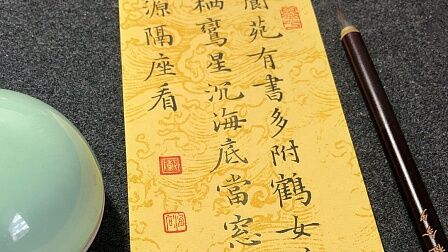 閬苑有書多附鶴女
栖鸞星沉海底當窓
源隔座看